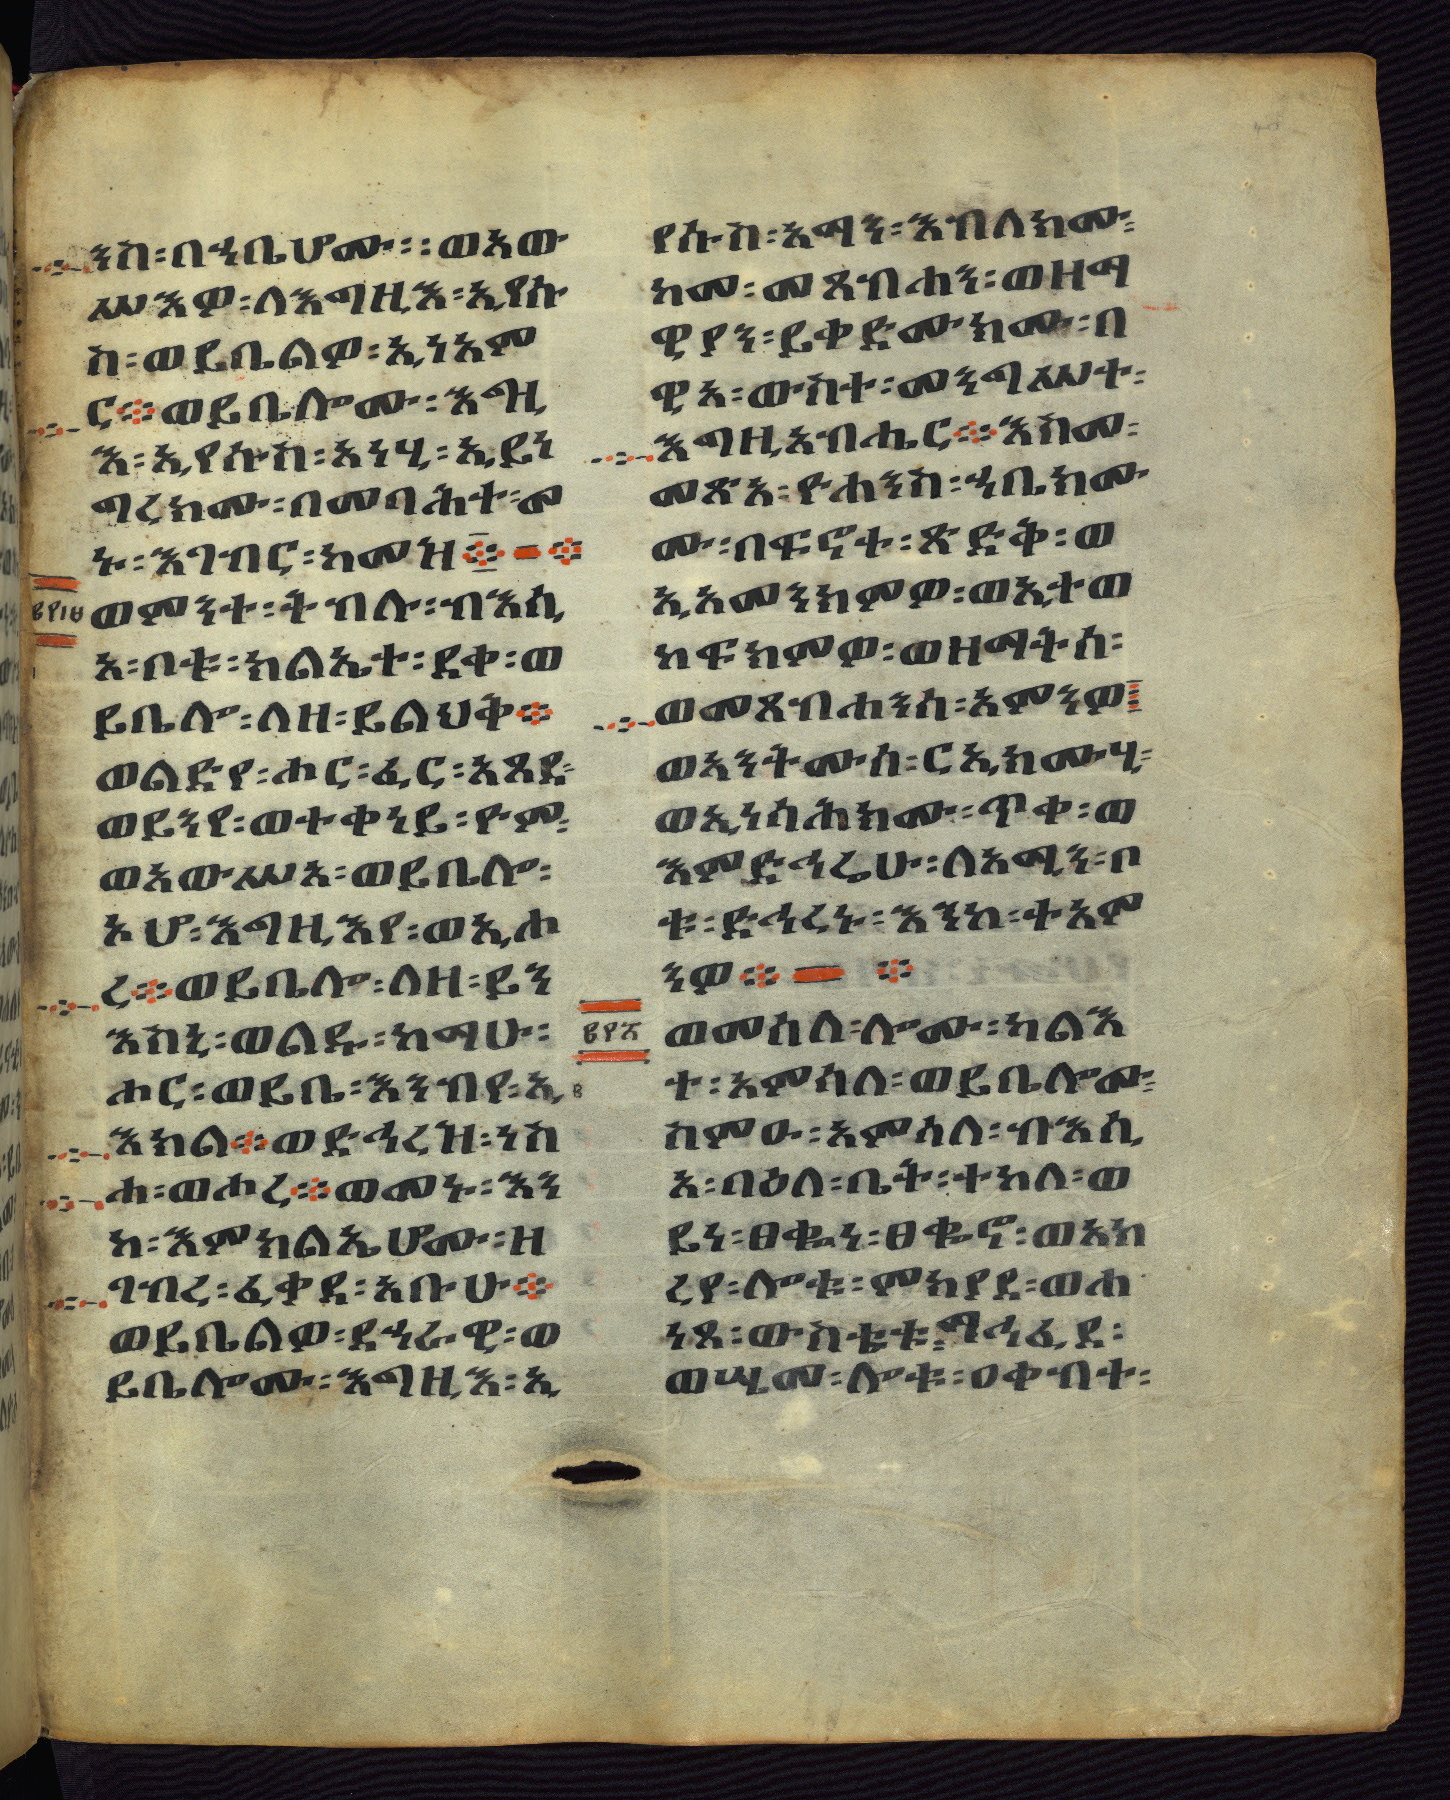 ንስ፡በኀቤሆሙ፡፡ወአው
ሥእዎ፡ለእግዚእ፡ኢየሱ
ስ፡ወይቤልዎ፡ኢነአም
ር፨ወይቤሎሙ፡እግዚ
እ፡ኢየሱስ፡አነሂ፡ኢይነ
ግረክሙ፡በመባሕተ፡ም
ኑ፡እገብር፡ከመዝ፨
፪፻፲፱
ወምንተ፡ትብሉ፡ብእሲ
አ፡ቦቱ፡ክልኤተ፡ደቀ፡ወ
ይቤሎ፡ለዘ፡ይልህቅ፨
ወልድየ፡ሑር፡ፊር፡አጸደ፡
ወይንየ፡ወተቀነይ፡ዮም፡
ወአውሥአ፡ወይቤሎ፡
ኦሆ፡እግዚእየ፡ወኢሖ
ረ፨ወይቤሎ፡ለዘ፡ይን
እስኒ፡ወልዱ፡ከማሁ፡
ሑር፡ወይቤ፡እንብየ፡ኢ
እክል፨ወድኅረዝ፡ነስ
ሐ፡ወሖረ፨ወመኑ፡እን
ከ፡እምክልኤሆሙ፡ዘ
ገብረ፡ፈቃደ፡አቡሁ፨
ወይቤልዎ፡ደኃራዊ፡ወ
ይቤሎሙ፡እግዚእ፡ኢ
የሱስ፡አማን፡እብለክሙ፡
ከመ፡መጸብሐን፡ወዘማ
ዊያን፡ይቀድሙክሙ፡በ
ዊአ፡ውስተ፡መንግሥተ፡
እግዚአብሔር፨እስመ፡
መጽአ፡ዮሐንስ፡ኀቤክሙ
ሙ፡በፍኖተ፡ጽድቅ፡ወ
ኢአመንክምዎ፡ወኢተወ
ከፍክምዎ፡ወዘማትስ፡
ወመጸብሐንስ፡አምንዎ፡
ወአንትሙሰ፡ርኢክሙሂ፡
ወኢነሳሕክሙ፡ጥቀ፡ወ
እምድኅሬሁ፡ለአሚን፡ቦ
ቱ፡ድኅረኑ፡እንከ፡ተአም
ንዎ፨
፪፻፳
ወመሰለ፡ሎሙ፡ካልእ
ተ፡አምሳለ፡ወይቤሎሙ፡
ስምዑ፡አምሳለ፡ብእሲ
አ፡በዕለ፡ቤት፡ተከለ፡ወ
ይነ፡ፀቈነ፡ፀቈኖ፡ወአክ
ረየ፡ሎቱ፡ምክያደ፡ወሐ
ነጸ፡ውስቴቱ፡ማኅፈደ፡
ወሤመ፡ሎቱ፡ዐቀብተ፡